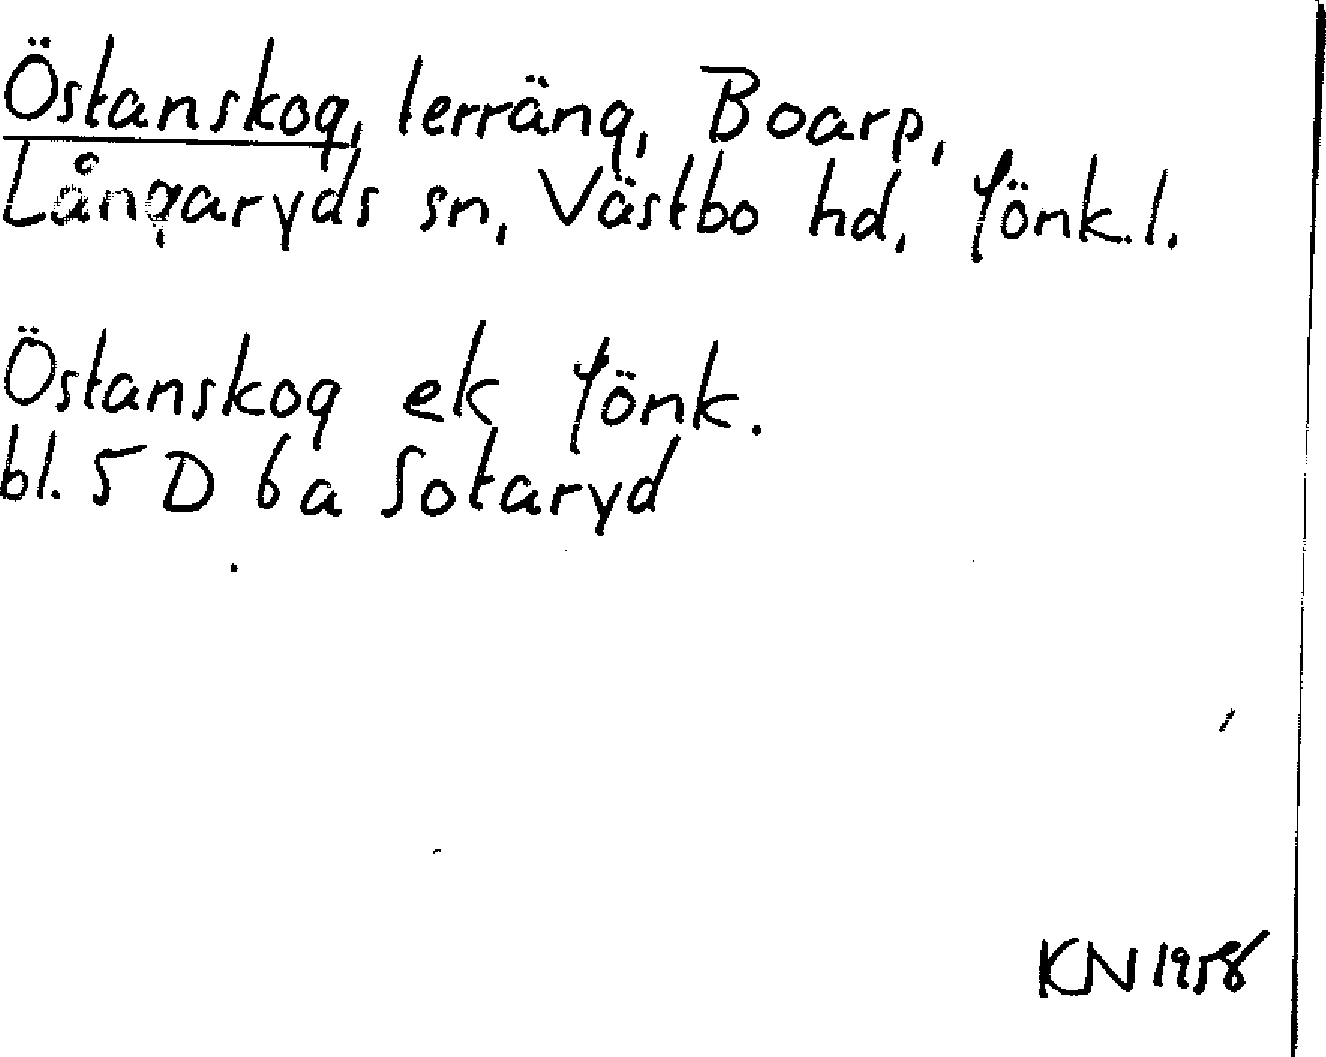 Östanskog, lerräng, Boarp,
Långaryds sn, Västbo hd, Jönk.l.
Östanskog ek Jönk.
bl. 5 D 6a Sotaryd
KN 1958